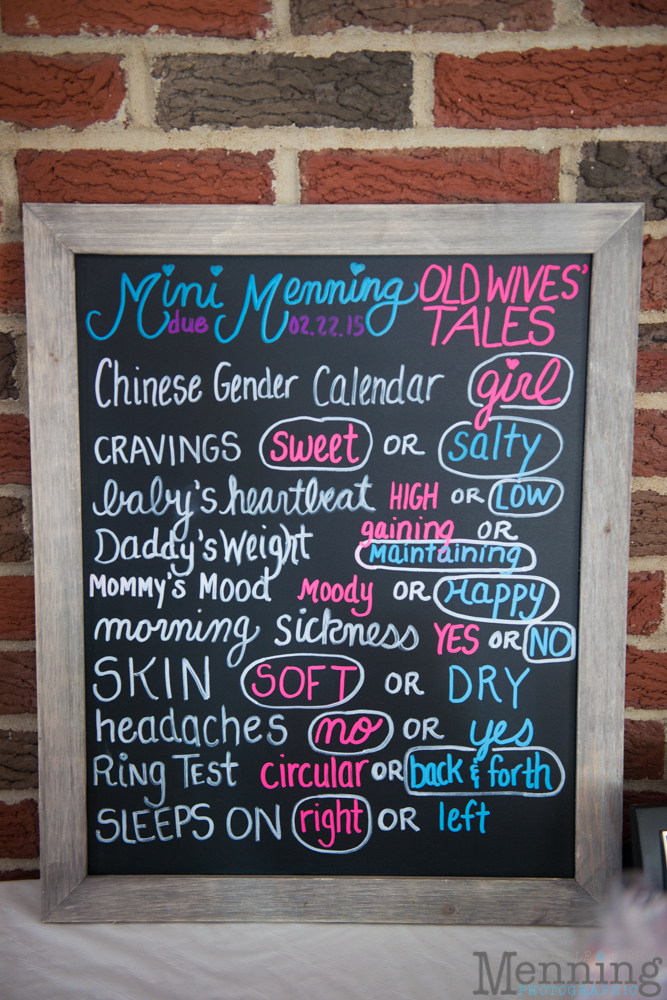 Mini Menning OLD WIVES'
due 02.22.15 TALES
Chinese Gender Calendar girl
CRAVINGS sweet OR salty
baby's heartbeat HIGH OR LOW
Daddy's Weight gaining OR
Maintaining
Mommy's Mood Moody OR Happy
morning sickness YES OR NO
SKIN SOFT OR DRY
headaches no OR yes
Ring Test circular OR back & forth
SLEEPS ON right OR left
Menning
PHOTOGRAPHIC